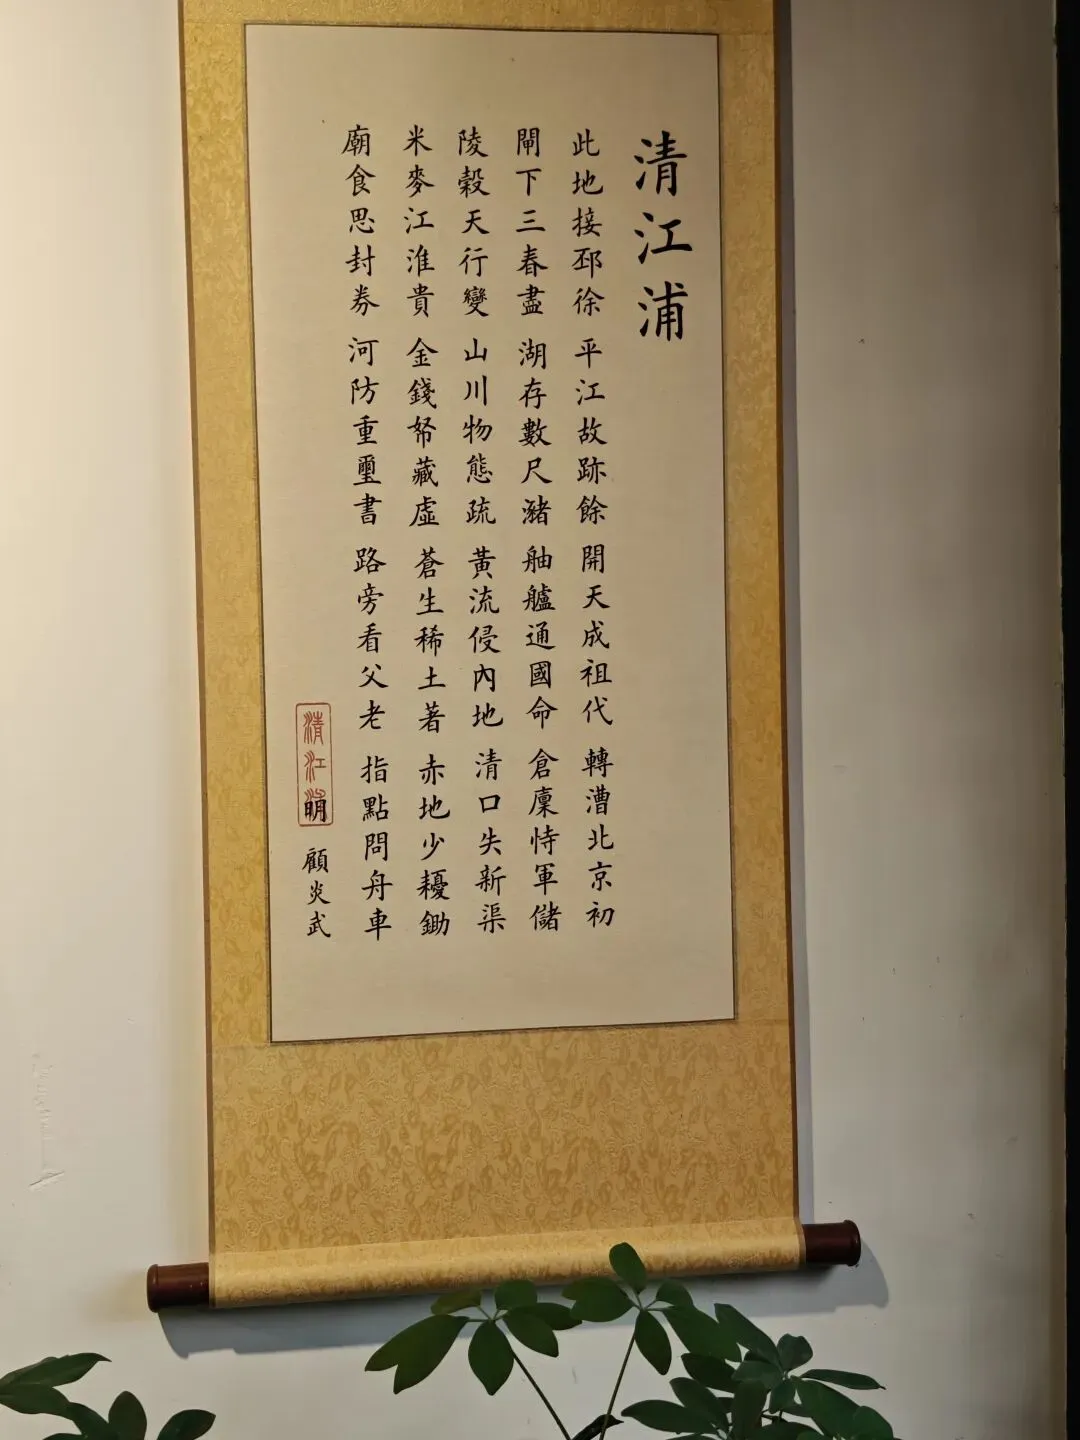 清江浦
此地接邳徐 平江故跡餘 開天成祖代 轉漕北京初
閘下三春盡 湖存數尺瀦 舳艫通國命 倉廩恃軍儲
陵穀天行變 山川物態疏 黃流侵內地 清口失新渠
米麥江淮貴 金錢帑藏虛 蒼生稀土著 赤地少耰鋤
廟食思封券 河防重璽書 路旁看父老 指點問舟車
明 顧炎武
清江浦